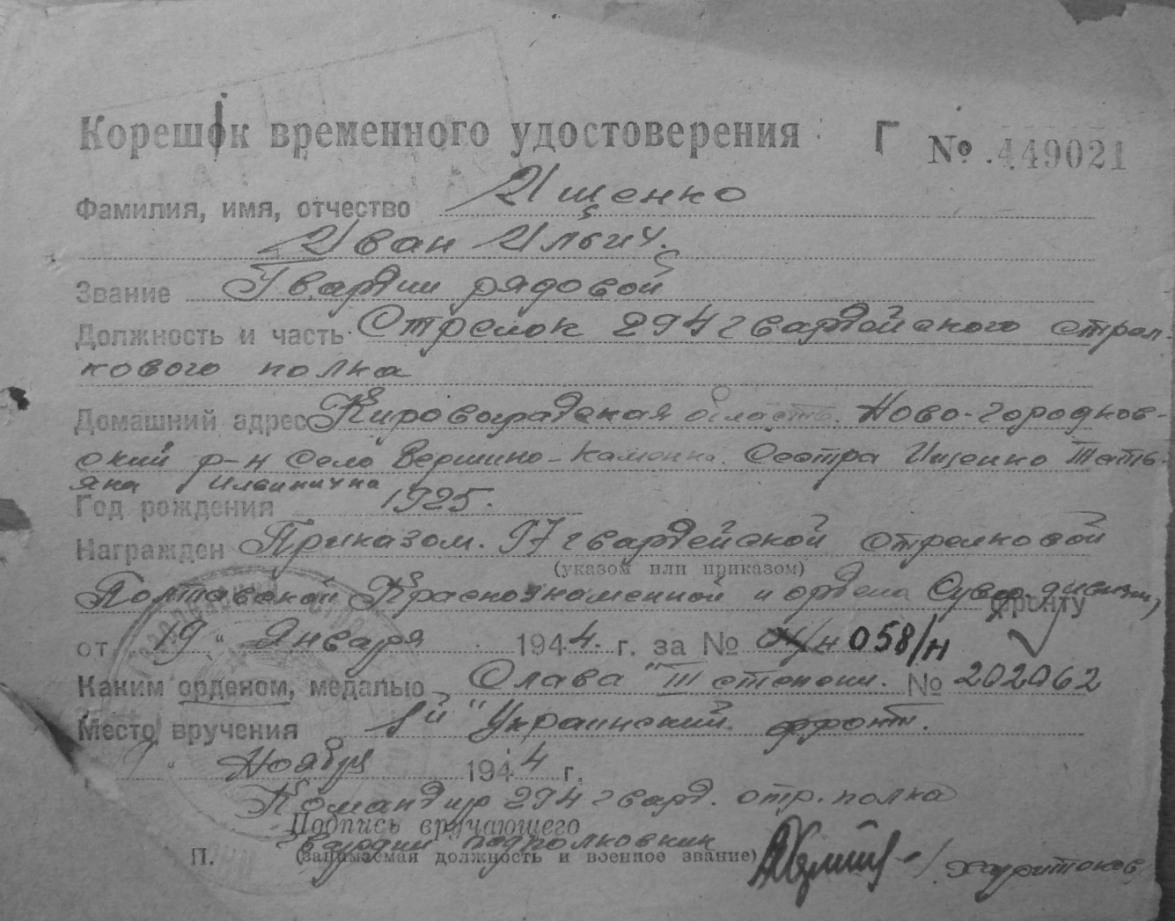 Корешок временного удостоверения Г № 449021
Фамилия, имя, отчество Ищенко
Иван Ильич.
Звание Гвардии рядовой
Должность и часть Стрелок 294 гвардейского стрел-
кового полка
Домашний адрес Кировоградская область. Ново-городков-
ский р-н село Вершино-Каменка. Сестра Ищенко Тать-
яна Ильинична
Год рождения 1925.
Награжден Приказом. 97 гвардейской стрелковой
(указом или приказом)
Полтавской Краснознаменной и ордена Сувор. дивизии,
фронту
от 19 " Января 1944. г. за № 058/н
Каким орденом, медалью „Слава" III степени. № 202062
Место вручения 1й "Украинский фронт.
9 " Ноября 1944 г.
Командир 294 гвард. стр. полка
Подпись вручающего
гвардии подполковник
П. (занимаемая должность и военное звание) /Харитонов